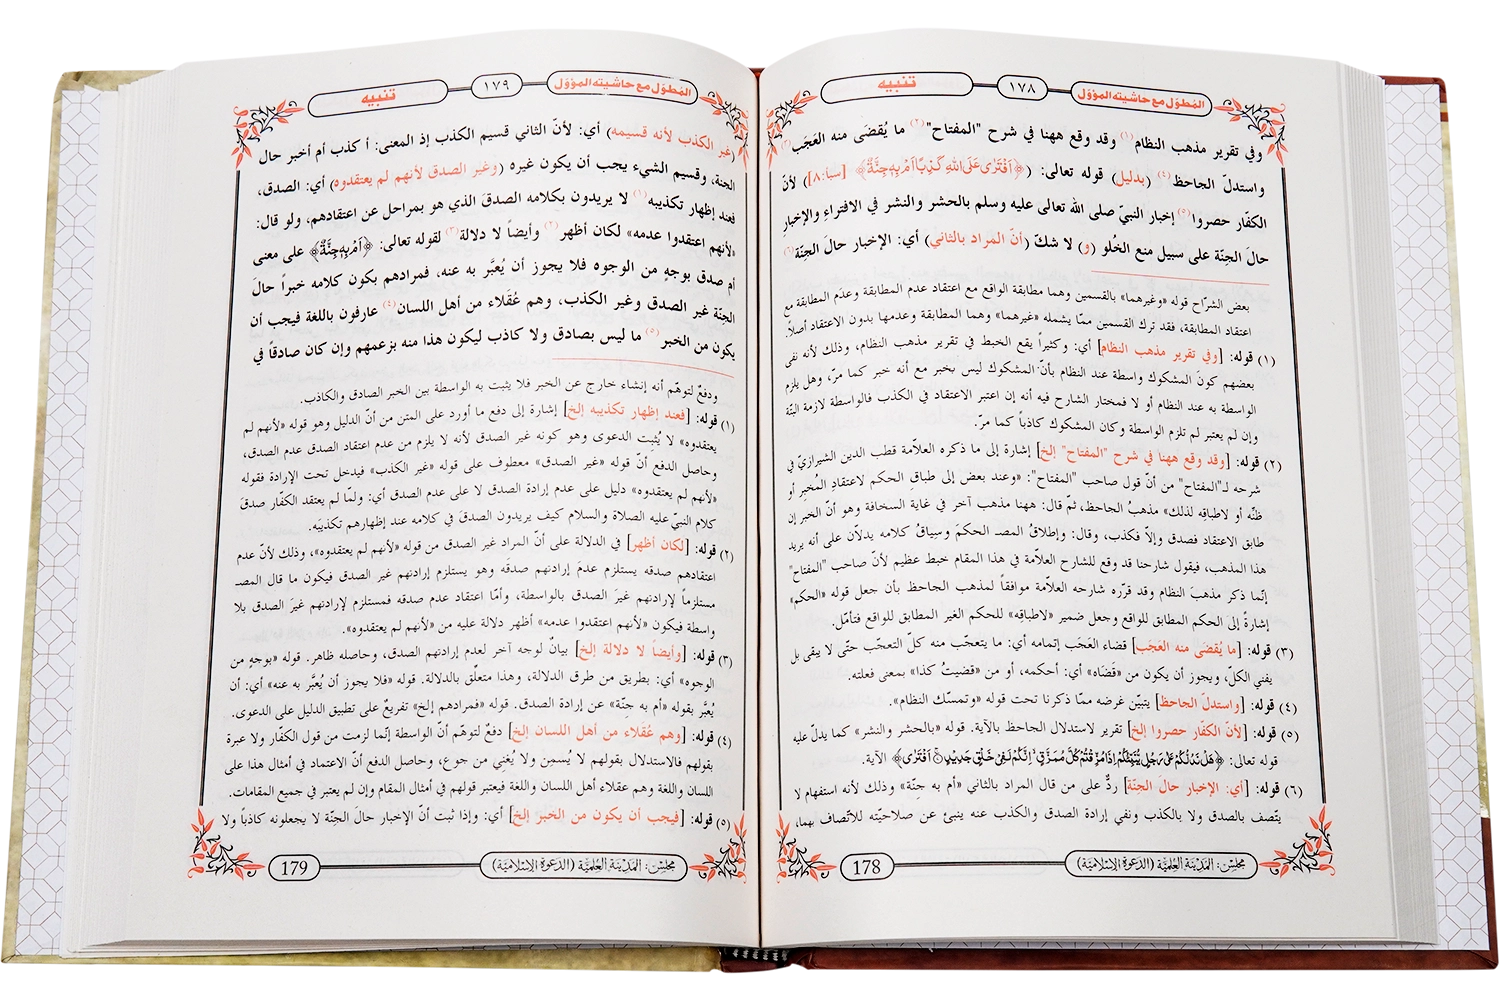 المطوّل مع حاشيته المؤوّل
١٧٨
تنبيه
وفي تقرير مذهب النظام(١) وقد وقع ههنا في شرح "المفتاح"(٢) ما يُقضَى منه العَجَب(٣)
واستدلّ الجاحظ(٤) (بدليل) قوله تعالى: (﴿اَفْتَرٰى عَلَى اللهِ كَذِبًا اَمْ بِهٖ جِنَّةٌ﴾ [سبا:٨]) لأنّ
الكفّار حصروا(٥) إخبار النبيّ صلى الله تعالى عليه وسلم بالحشر والنشر في الافتراء والإخبارِ
حالَ الجِنّة على سبيل منع الخُلو (و) لا شكّ (أنّ المراد بالثاني) أي: الإخبار حالَ الجِنّة(٦)
بعض الشرّاح قوله «وغيرهما» بالقسمين وهما مطابقة الواقع مع اعتقاد عدم المطابقة وعدَم المطابقة مع
اعتقاد المطابقة، فقد ترك القسمين ممّا يشمله «غيرهما» وهما المطابقة وعدمها بدون الاعتقاد أصلاً.
(١) قوله: [وفي تقرير مذهب النظام] أي: وكثيراً يقع الخبط في تقرير مذهب النظام، وذلك لأنه نفى
بعضهم كونَ المشكوك واسطة عند النظام بأنّ المشكوك ليس بخبر مع أنه خبر كما مرّ، وهل يلزم
الواسطة به عند النظام أو لا فمختار الشارح فيه أنه إن اعتبر الاعتقاد في الكذب فالواسطة لازمة البتّة
وإن لم يعتبر لم تلزم الواسطة وكان المشكوك كاذباً كما مرّ.
(٢) قوله: [وقد وقع ههنا في شرح "المفتاح" إلخ] إشارة إلى ما ذكره العلاّمة قطب الدين الشيرازيّ في
شرحه لـ"المفتاح" من أنّ قول صاحب "المفتاح": «وعند بعض إلى طباق الحكم لاعتقادِ المُخبِر أو
ظنِّه أو لاطباقِه لذلك» مذهبُ الجاحظ، ثمّ قال: ههنا مذهب آخر في غاية السخافة وهو أنّ الخبر إن
طابق الاعتقاد فصدق وإلاّ فكذب، وقال: وإطلاقُ المصـ الحكمَ وسياقُ كلامه يدلاّن على أنه يريد
هذا المذهب، فيقول شارحنا قد وقع للشارح العلاّمة في هذا المقام خبط عظيم لأنّ صاحب "المفتاح"
إنّما ذكر مذهبَ النظام وقد قرّره شارحه العلاّمة موافقاً لمذهب الجاحظ بأن جعل قوله «الحكم»
إشارةً إلى الحكم المطابق للواقع وجعل ضمير «لاطباقِه» للحكم الغير المطابق للواقع فتأمّل.
(٣) قوله: [ما يُقضَى منه العَجَب] قضاء العَجَب إتمامه أي: ما يتعجّب منه كلّ التعجّب حتّى لا يبقى بل
يفني الكل، ويجوز أن يكون من «قَضَاه» أي: أحكمه، أو من «قضيتُ كذا» بمعنى فعلته.
(٤) قوله: [واستدلّ الجاحظ] يتبيّن غرضه ممّا ذكرنا تحت قوله «وتمسك النظام».
(٥) قوله: [لأنّ الكفّار حصروا إلخ] تقرير لاستدلال الجاحظ بالآية. قوله «بالحشر والنشر» كما يدلّ عليه
قوله تعالى: ﴿هَلْ نَدُلُّكُمْ عَلٰى رَجُلٍ يُّنَبِّئُكُمْ اِذَا مُزِّقْتُمْ كُلَّ مُمَزَّقٍ اِنَّكُمْ لَفِيْ خَلْقٍ جَدِيْدٍ اَفْتَرٰى﴾ الآية.
(٦) قوله: [أي: الإخبار حالَ الجنّة] ردٌّ على من قال المراد بالثاني «أم به جنّة» وذلك لأنه استفهام لا
يتّصف بالصدق ولا بالكذب ونفي إرادة الصدق والكذب عنه ينبئ عن صلاحيّته للاتّصاف بهما،
مجلسْ: المَدِيْنَة العِلْمِيَّة (الدعوة الإسْلاميَّة)
178
المطوّل مع حاشيته المؤوّل
١٧٩
تنبيه
(غير الكذب لأنه قسيمه) أي: لأنّ الثاني قسيم الكذب إذ المعنى: أ كذب أم أخبر حال
الجنة، وقسيم الشيء يجب أن يكون غيره (وغير الصدق لأنهم لم يعتقدوه) أي: الصدق،
فعند إظهار تكذيبه(١) لا يريدون بكلامه الصدقَ الذي هو بمراحل عن اعتقادهم، ولو قال:
«لأنهم اعتقدوا عدمه» لكان أظهر(٢) وأيضاً لا دلالة(٣) لقوله تعالى: ﴿اَمْ بِهٖ جِنَّةٌ﴾ على معنى
أم صدق بوجهٍ من الوجوه فلا يجوز أن يُعبَّر به عنه، فمرادهم بكون كلامه خبراً حالَ
الجِنّة غير الصدق وغير الكذب، وهم عُقَلاء من أهل اللسان(٤) عارفون باللغة فيجب أن
يكون من الخبر(٥) ما ليس بصادق ولا كاذب ليكون هذا منه بزعمهم وإن كان صادقاً في
ودفعٌ لتوهّم أنه إنشاء خارج عن الخبر فلا يثبت به الواسطة بين الخبر الصادق والكاذب.
(١) قوله: [فعند إظهار تكذيبه إلخ] إشارة إلى دفع ما أورد على المتن من أنّ الدليل وهو قوله «لأنهم لم
يعتقدوه» لا يُثبت الدعوى وهو كونه غير الصدق لأنه لا يلزم من عدم اعتقاد الصدق عدم الصدق،
وحاصل الدفع أنّ قوله «غير الصدق» معطوف على قوله «غير الكذب» فيدخل تحت الإرادة فقوله
«لأنهم لم يعتقدوه» دليل على عدم إرادة الصدق لا على عدم الصدق أي: ولمّا لم يعتقد الكفّار صدقَ
كلام النبيّ عليه الصلاة والسلام كيف يريدون الصدقَ في كلامه عند إظهارهم تكذيبَه.
(٢) قوله: [لكان أظهر] في الدلالة على أنّ المراد غير الصدق من قوله «لأنهم لم يعتقدوه»، وذلك لأنّ عدم
اعتقادهم صدقه يستلزم عدمَ إرادتهم صدقه وهو يستلزم إرادتهم غير الصدق فيكون ما قال المصـ
مستلزماً لإرادتهم غيرَ الصدق بالواسطة، وأمّا اعتقاد عدم صدقه فمستلزم لإرادتهم غيرَ الصدق بلا
واسطة فيكون «لأنهم اعتقدوا عدمه» أظهر دلالة عليه من «لأنهم لم يعتقدوه».
(٣) قوله: [وأيضاً لا دلالة إلخ] بيانٌ لوجه آخر لعدم إرادتهم الصدق، وحاصله ظاهر. قوله «بوجهٍ من
الوجوه» أي: بطريق من طرق الدلالة، وهذا متعلِّق بالدلالة. قوله «فلا يجوز أن يُعبَّر به عنه» أي: أن
يُعبَّر بقوله «أم به جِنّة» عن إرادة الصدق. قوله «فمرادهم إلخ» تفريعٌ على تطبيق الدليل على الدعوى.
(٤) قوله: [وهم عُقَلاء من أهل اللسان إلخ] دفعٌ لتوهّم أنّ الواسطة إنّما لزمت من قول الكفّار ولا عبرة
بقولهم فالاستدلال بقولهم لا يُسمِن ولا يُغنِي من جوع، وحاصل الدفع أنّ الاعتماد في أمثال هذا على
اللسان واللغة وهم عقلاء أهل اللسان واللغة فيعتبر قولهم في أمثال المقام وإن لم يعتبر في جميع المقامات.
(٥) قوله: [فيجب أن يكون من الخبر إلخ] أي: وإذا ثبت أنّ الإخبار حالَ الجنّة لا يجعلونه كاذباً ولا
مجلسْ: المَدِيْنَة العِلْمِيَّة (الدعوة الإسْلاميَّة)
179